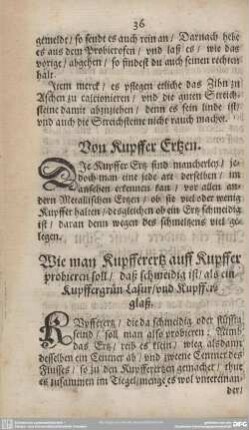 36
gemeldet / so sendt es auch rein an / Darnach hebe
es aus dem Probierofen / und laß es / wie das
vorige / abgehen / so findest du auch seinen rechten
halt.
Item merck / es pflegen etliche das Zihn zu
Aschen zu calcionieren / und die guten Streich-
steine damit abzuziehen / denn es sein linde ist /
und auch die Streichsteine nicht rauch machet.
Von Kupffer Ertzen.
DJe Kupffer Ertz sind mancherley / je-
doch man eine jede art derselben / im
ansehen erkennen kan / vor allen an-
dern Metallischen Ertzen / ob sie viel oder wenig
Kupffer halten / desgleichen ob ein Ertz schmeidig
ist / daran denn wegen des schmeltzens viel ge-
legen.
Wie man Kupfferertz auff Kupffer
probieren soll / daß schmeidig ist / als ein
Kupffergrün Lasur / und Kupffer-
glaß.
KUpfferertz / die da schmeidig oder flüssig
seind / soll man also probieren: Nimb
das Ertz / reib es klein / wieg alsdann
desselben ein Centner ab / und zweene Centner des
Flusses / so zu den Kupffertzen gemachet / thut
es zusammen im Tiegel / menge es wol unterein-
der /